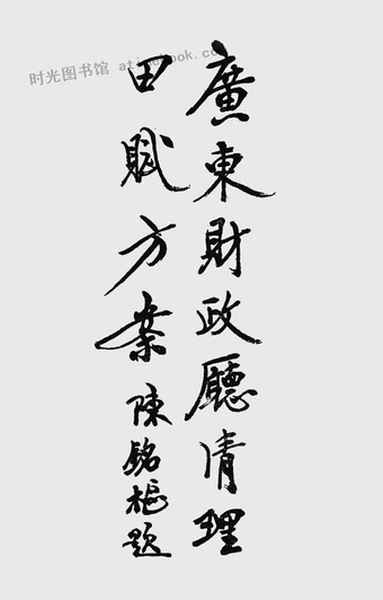 廣東財政廳清理
田賦方案 陳銘樞題
时光图书馆 atimebook.com